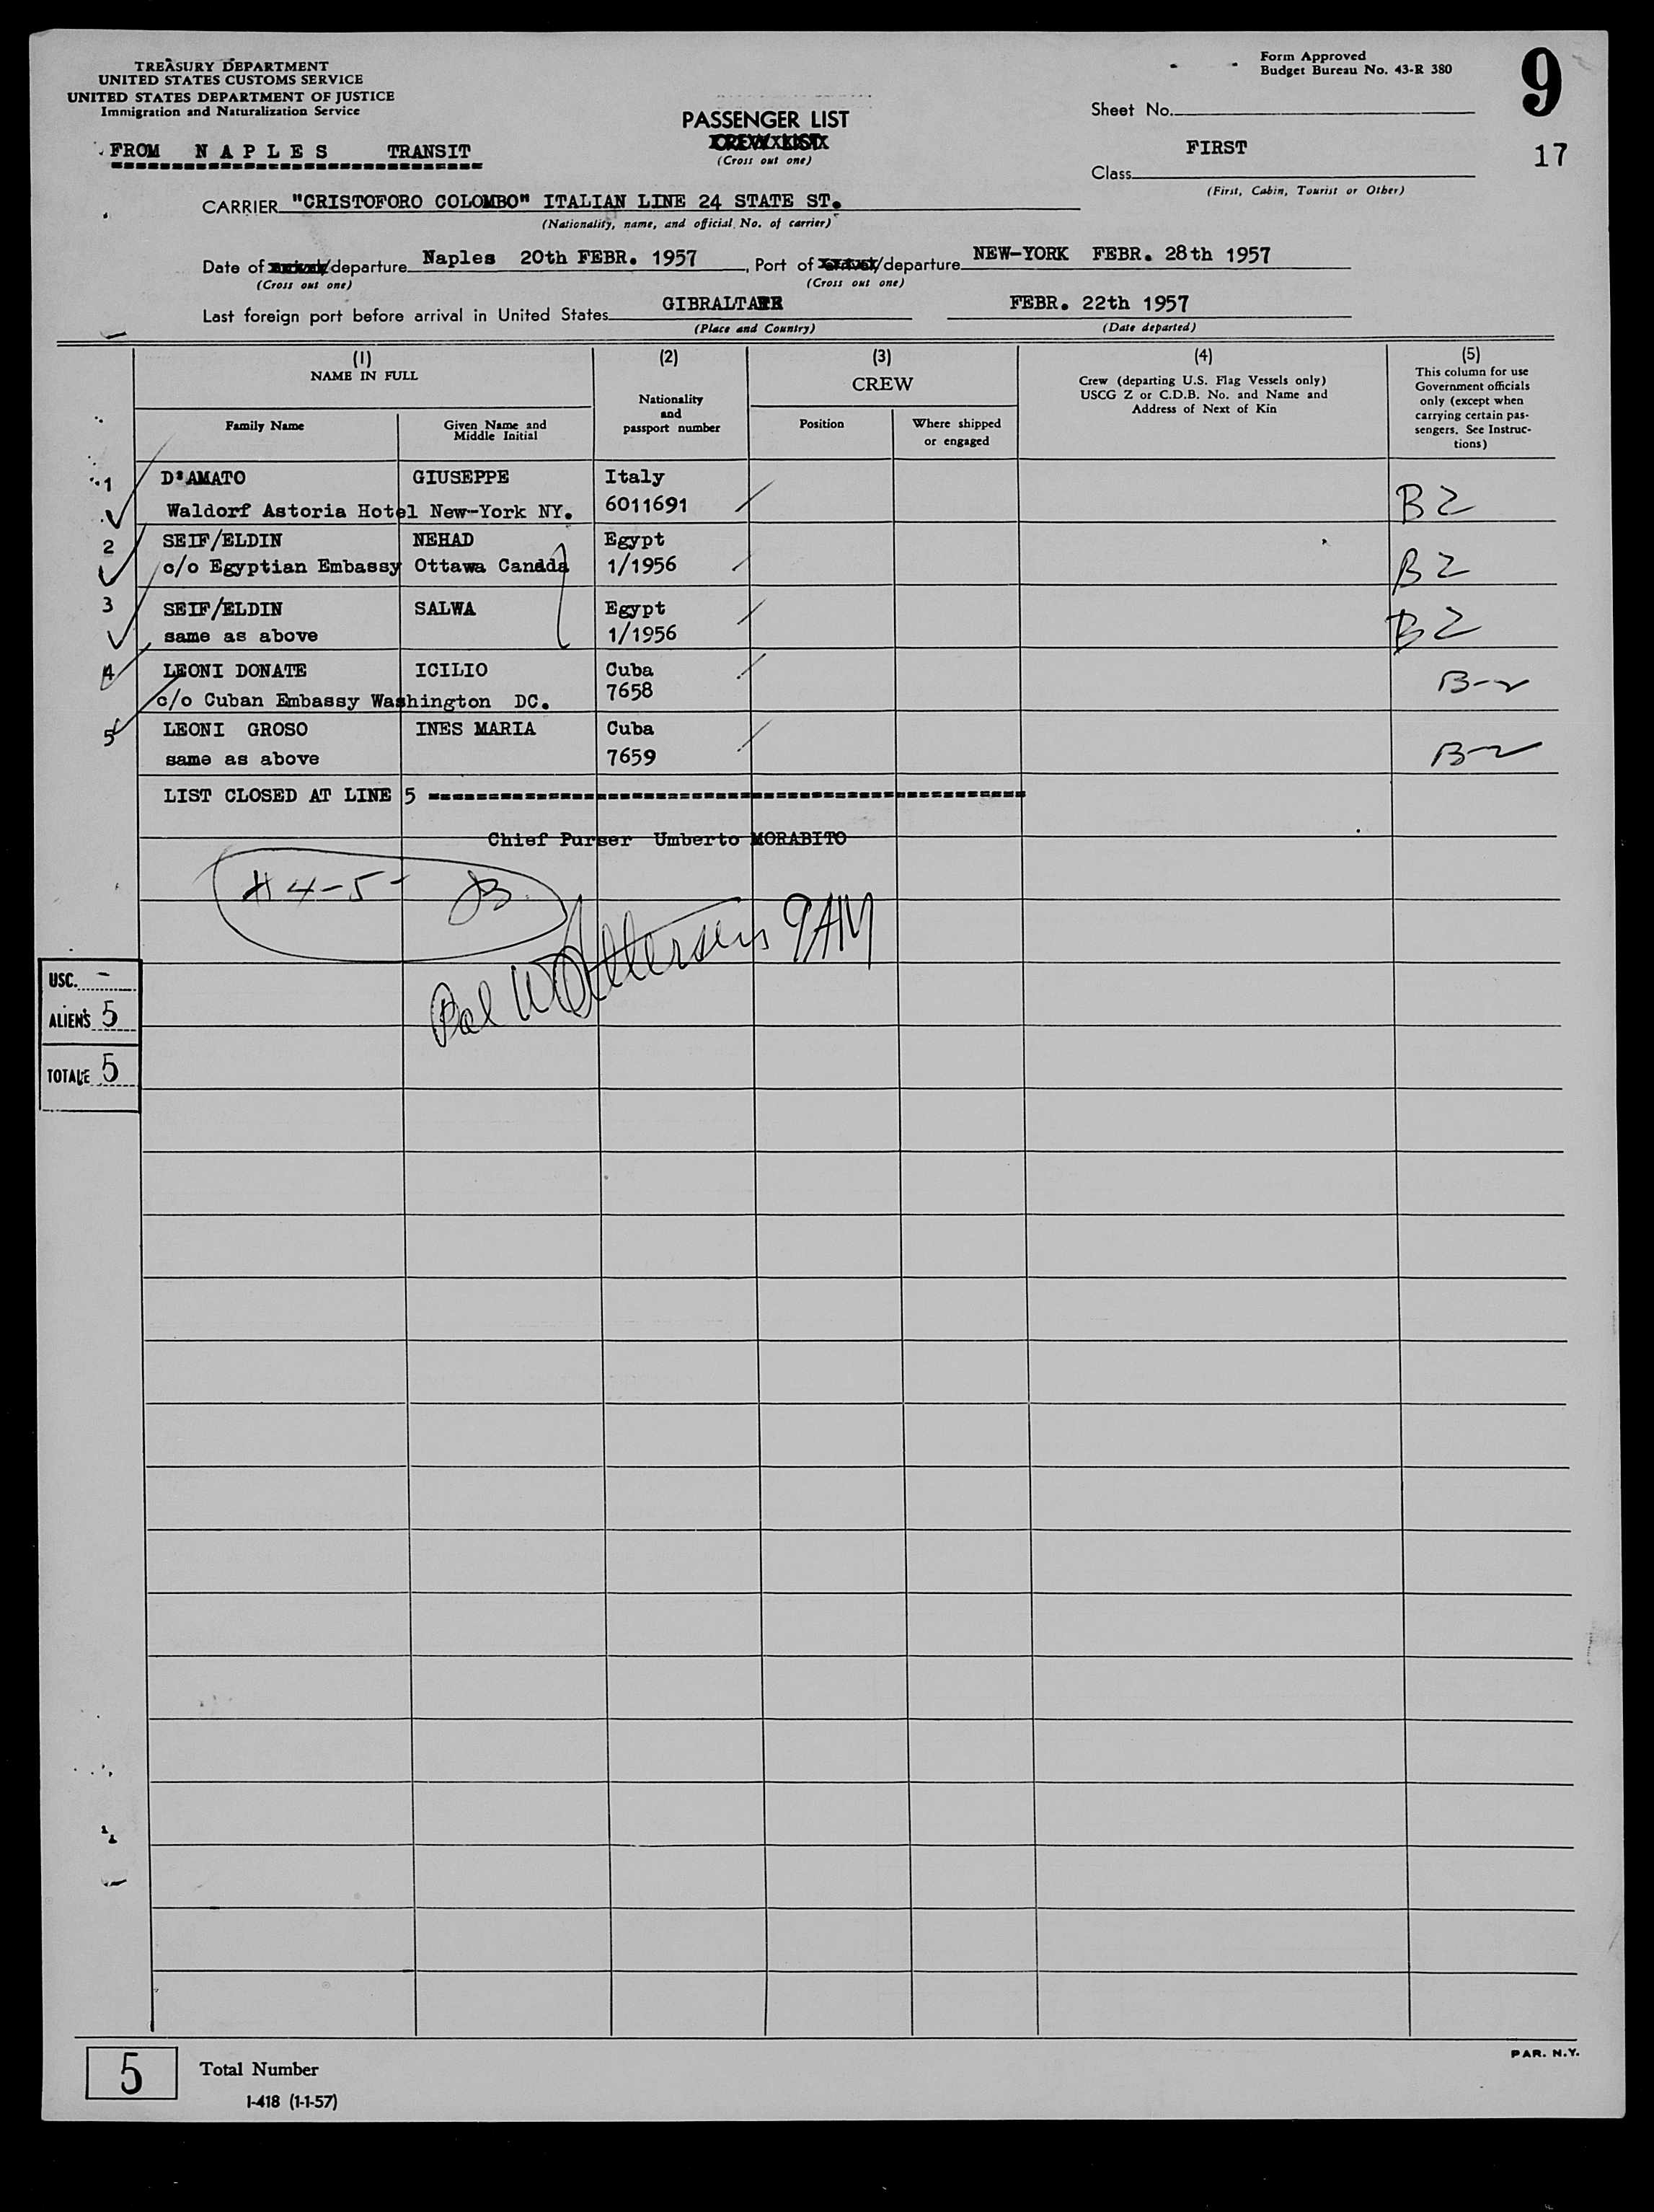 TREASURY DEPARTMENT
UNITED STATES CUSTOMS SERVICE
UNITED STATES DEPARTMENT OF JUSTICE
Immigration and Naturalization Service
Form Approved
Budget Bureau No. 43-R 380
9
Sheet No.
17
PASSENGER LIST
CREW LIST
(Cross out one)
FROM N A P L E S TRANSIT
FIRST
Class
(First, Cabin, Tourist or Other)
CARRIER "CRISTOFORO COLOMBO" ITALIAN LINE 24 STATE ST.
(Nationality, name, and official No. of carrier)
Date of arrival/departure Naples 20th FEBR. 1957, Port of arrival/departure NEW-YORK FEBR. 28th 1957
(Cross out one) (Cross out one)
Last foreign port before arrival in United States GIBRALTAR FEBR. 22th 1957
(Place and Country) (Date departed)
(1)
NAME IN FULL
Family Name
Given Name and
Middle Initial
(2)
Nationality
and
passport number
(3)
CREW
Position
Where shipped
or engaged
(4)
Crew (departing U.S. Flag Vessels only)
USCG Z or C.D.B. No. and Name and
Address of Next of Kin
(5)
This column for use
Government officials
only (except when
carrying certain pas-
sengers. See Instruc-
tions)
1 D'AMATO GIUSEPPE Italy
Waldorf Astoria Hotel New-York NY. 6011691 B2
2 SEIF/ELDIN NEHAD Egypt
c/o Egyptian Embassy Ottawa Canada 1/1956 B2
3 SEIF/ELDIN SALWA Egypt
same as above 1/1956 B2
4 LEONI DONATE ICILIO Cuba
c/o Cuban Embassy Washington DC. 7658 B-2
5 LEONI GROSO INES MARIA Cuba
same as above 7659 B-2
LIST CLOSED AT LINE 5
Chief Purser Umberto MORABITO
#4-5-
9AM
USC. -
ALIENS 5
TOTALE 5
5
Total Number
I-418 (1-1-57)
PAR. N.Y.